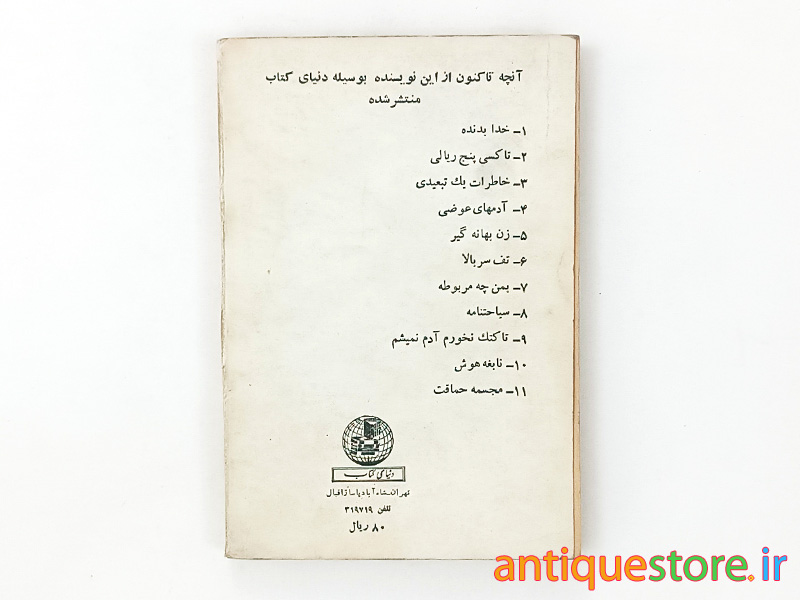 آنچه تاکنون از این نویسنده بوسیله دنیای کتاب
منتشر شده
۱ـ خدا بدنده
۲ـ تاکسی پنج ریالی
۳ـ خاطرات یك تبعیدی
۴ـ آدمهای عوضی
۵ـ زن بهانه گیر
۶ـ تف سربالا
۷ـ بمن چه مربوطه
۸ـ سیاحتنامه
۹ـ تا کتك نخورم آدم نمیشم
۱۰ـ نابغه هوش
۱۱ـ مجسمه حماقت
دنیای کتاب
تهران شاه آباد پاساژ اقبال
تلفن ۳۱۹۷۱۹
۸۰ ریال
antiquestore.ir